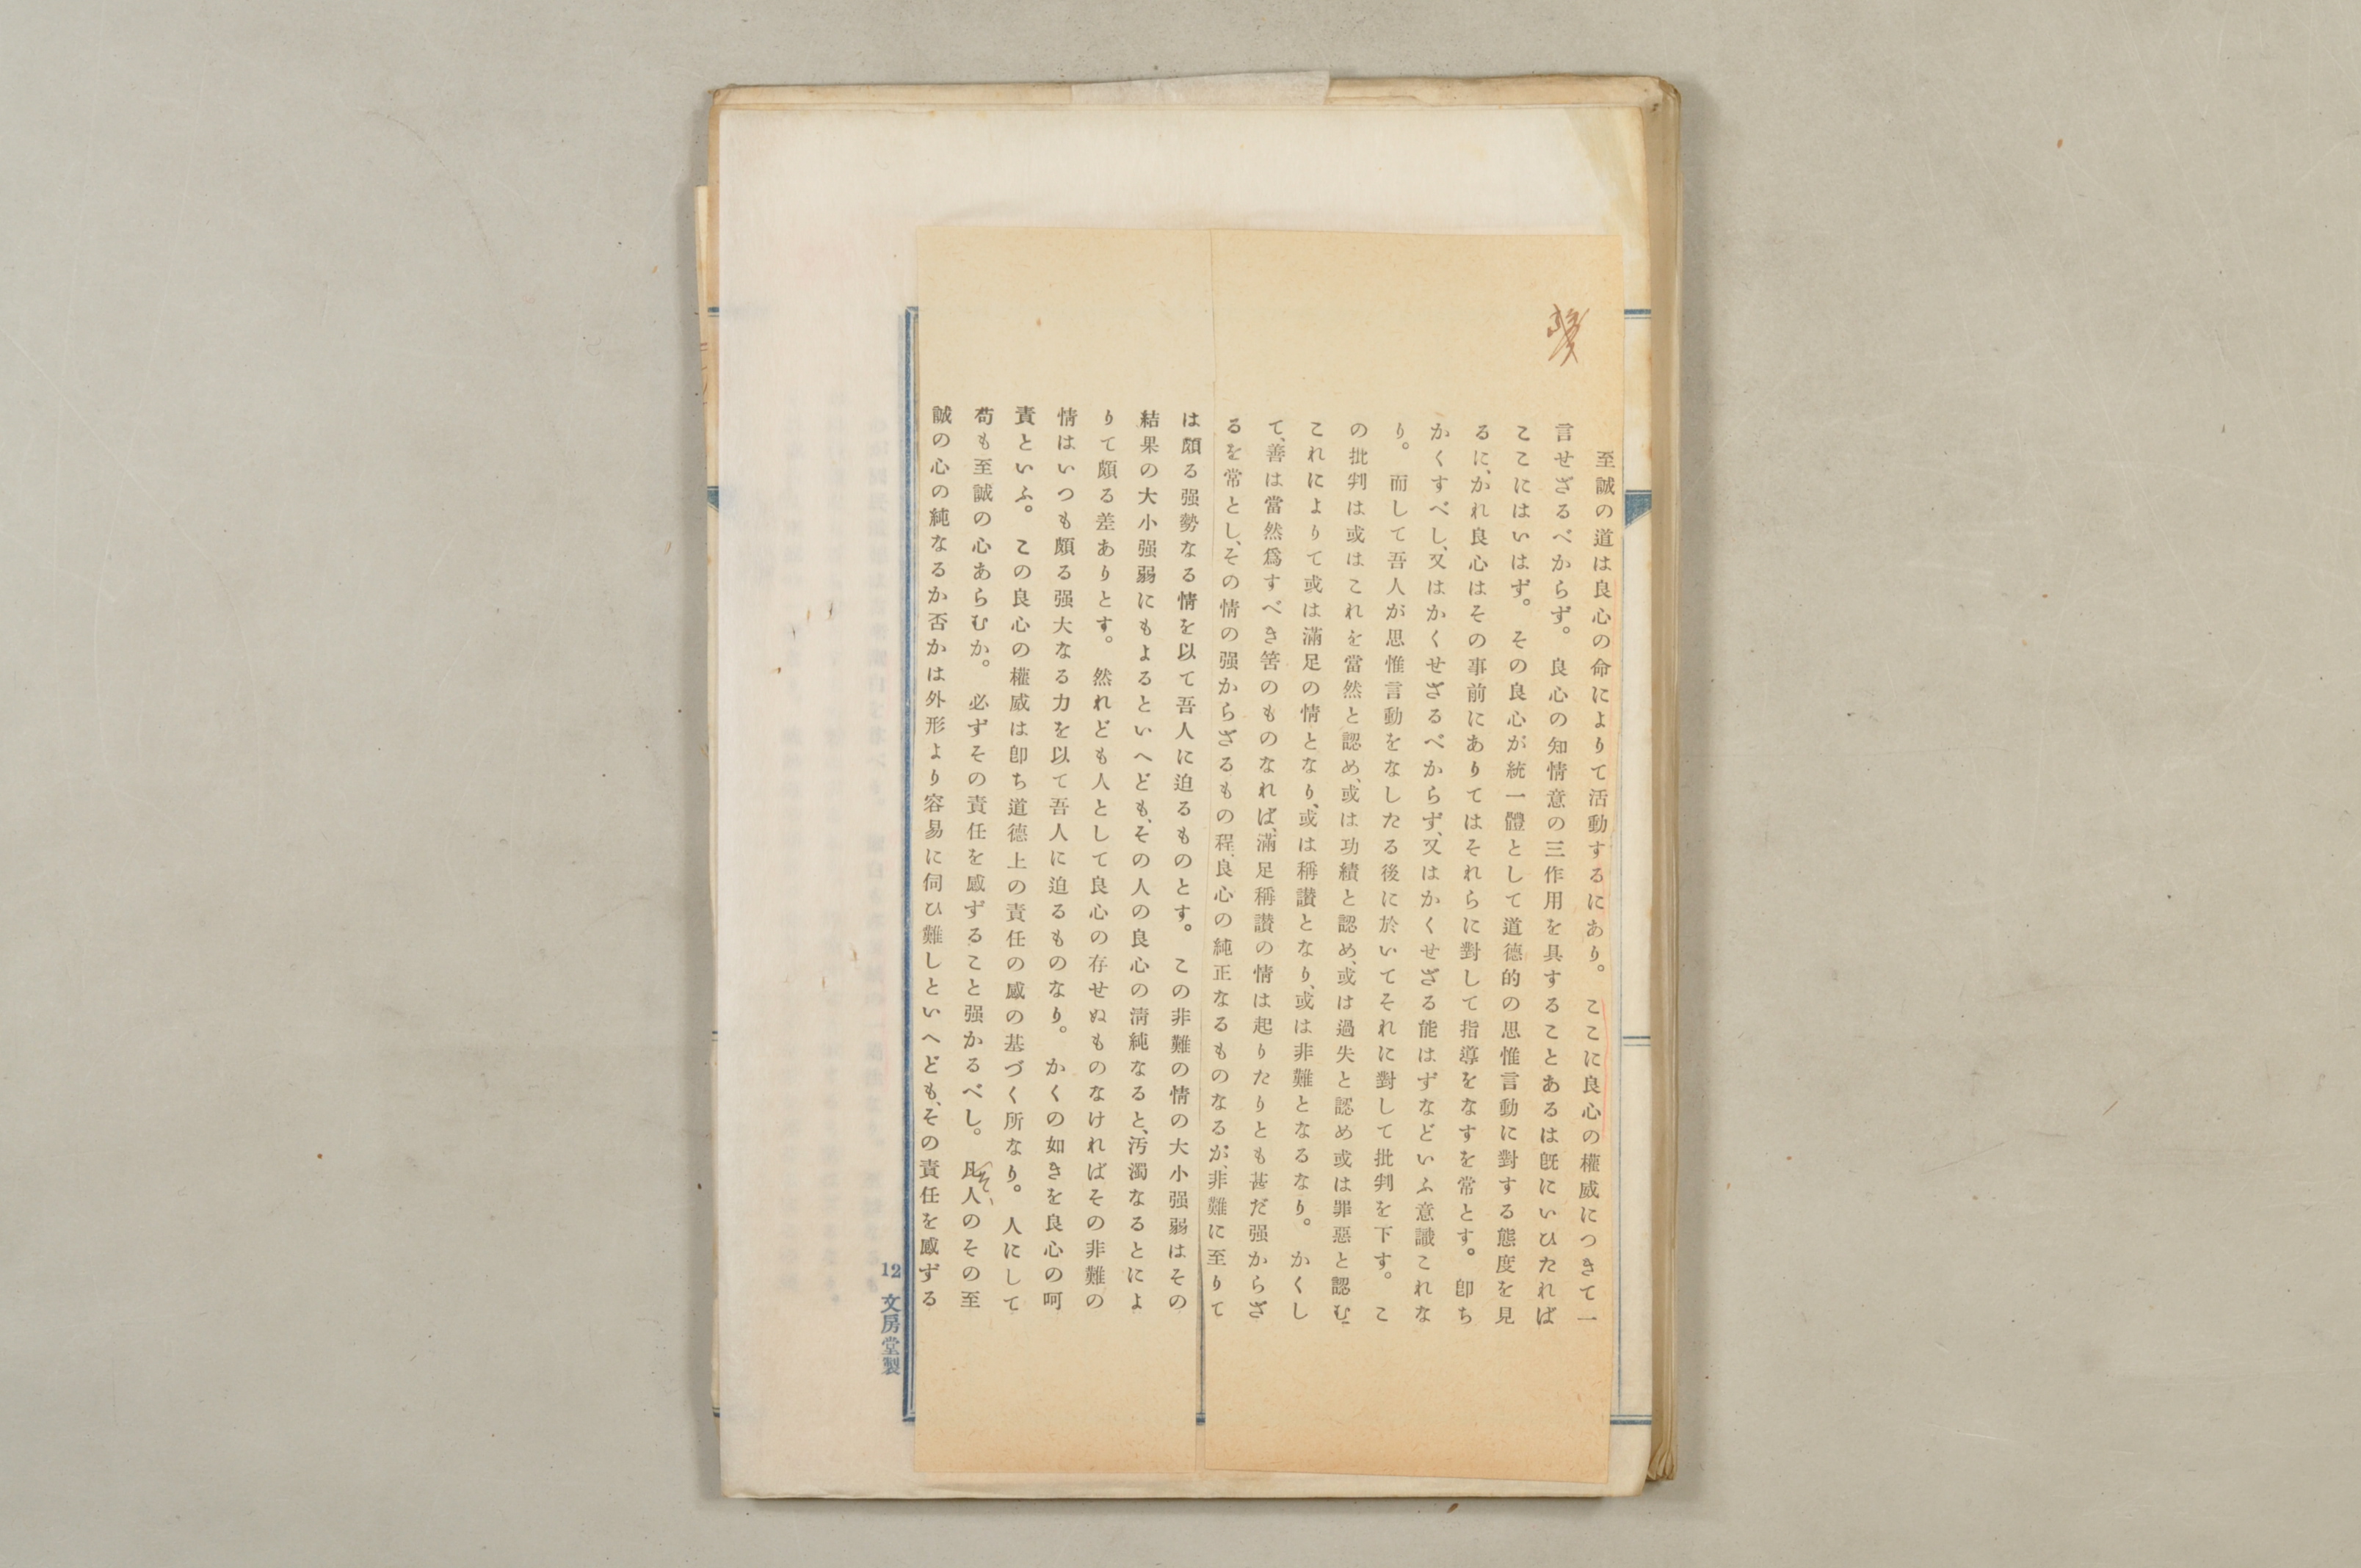 至誠の道は良心の命によりて活動するにあり。ここに良心の權威につきて一
言せざるべからず。良心の知情意の三作用を具することあるは既にいひたれば
ここにはいはず。その良心が統一體として道德的の思惟言動に對する態度を見
るに、かれ良心はその事前にありてはそれらに對して指導をなすを常とす。卽ち
かくすべし、又はかくせざるべからず、又はかくせざる能はずなどいふ意識これな
り。而して吾人が思惟言動をなしたる後に於いてそれに對して批判を下す。こ
の批判は或はこれを當然と認め、或は功績と認め、或は過失と認め或は罪惡と認む。
これによりて或は滿足の情となり、或は稱讃となり、或は非難となるなり。かくし
て、善は當然爲すべき筈のものなれば、滿足稱讃の情は起りたりとも甚だ强からざ
るを常とし、その情の强からざるもの程、良心の純正なるものなるが、非難に至りて
は頗る强勢なる情を以て吾人に迫るものとす。この非難の情の大小强弱はその
結果の大小强弱にもよるといへども、その人の良心の淸純なると、汚濁なるとによ
りて頗る差ありとす。然れども人として良心の存せぬものなければその非難の
情はいつも頗る强大なる力を以て吾人に迫るものなり。かくの如きを良心の呵
責といふ。この良心の權威は卽ち道德上の責任の感の基づく所なり。人にして
苟も至誠の心あらむか。必ずその責任を感ずること强かるべし。凡人のその至
そ
誠の心の純なるか否かは外形より容易に伺ひ難しといへども、その責任を感ずる
12 文房堂製